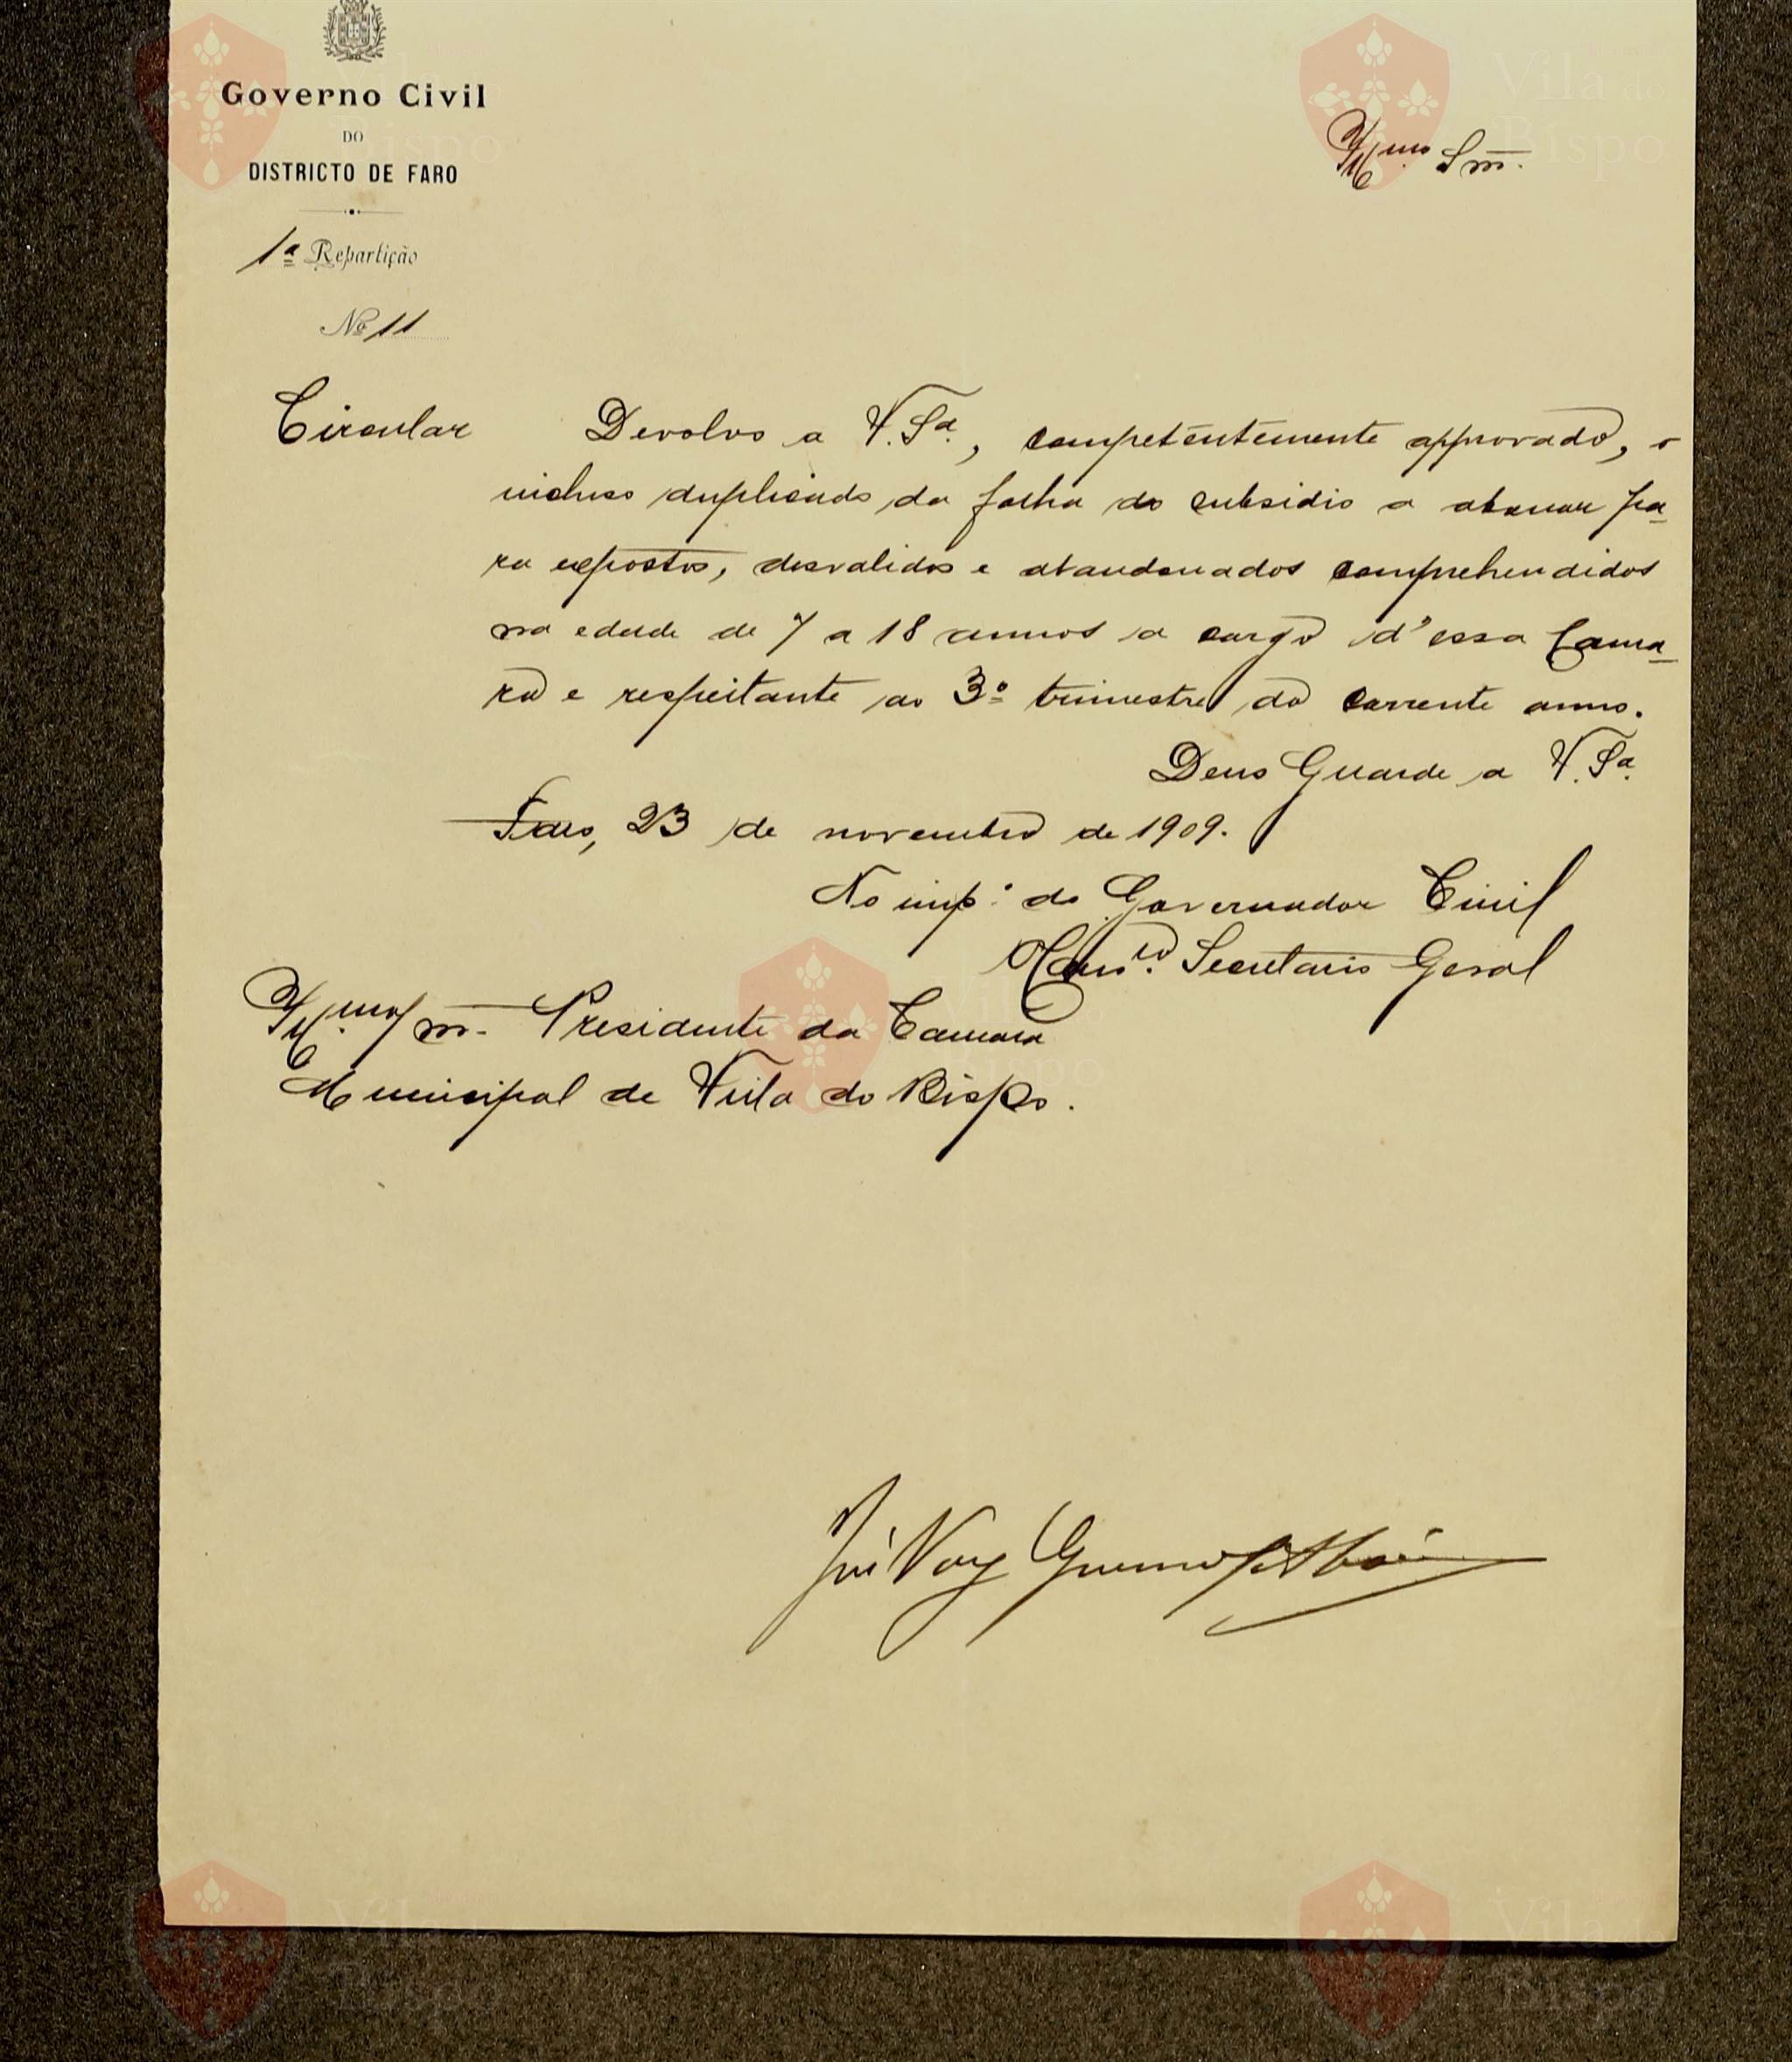 Governo Civil
DO
DISTRICTO DE FARO
1ª Repartição
Nº 11
Illmo Snr.
Circular
Devolvo a V. Sª., competentemente approvado, o
incluso duplicado da folha do subsidio a abonar pa-
ra expostos, desvalidos e abandonados comprehendidos
na edade de 7 a 18 annos a cargo d'essa Cama-
ra e respeitante ao 3º trimestre do corrente anno.
Deus Guarde a V. Sª.
Faro, 23 de novembro de 1909.
No imp.º do Governador Civil
Secretario Geral
Illmo Snr. Presidente da Camara
Municipal de Villa do Bispo.
José Vaz Guerreiro
Vila do
Bispo